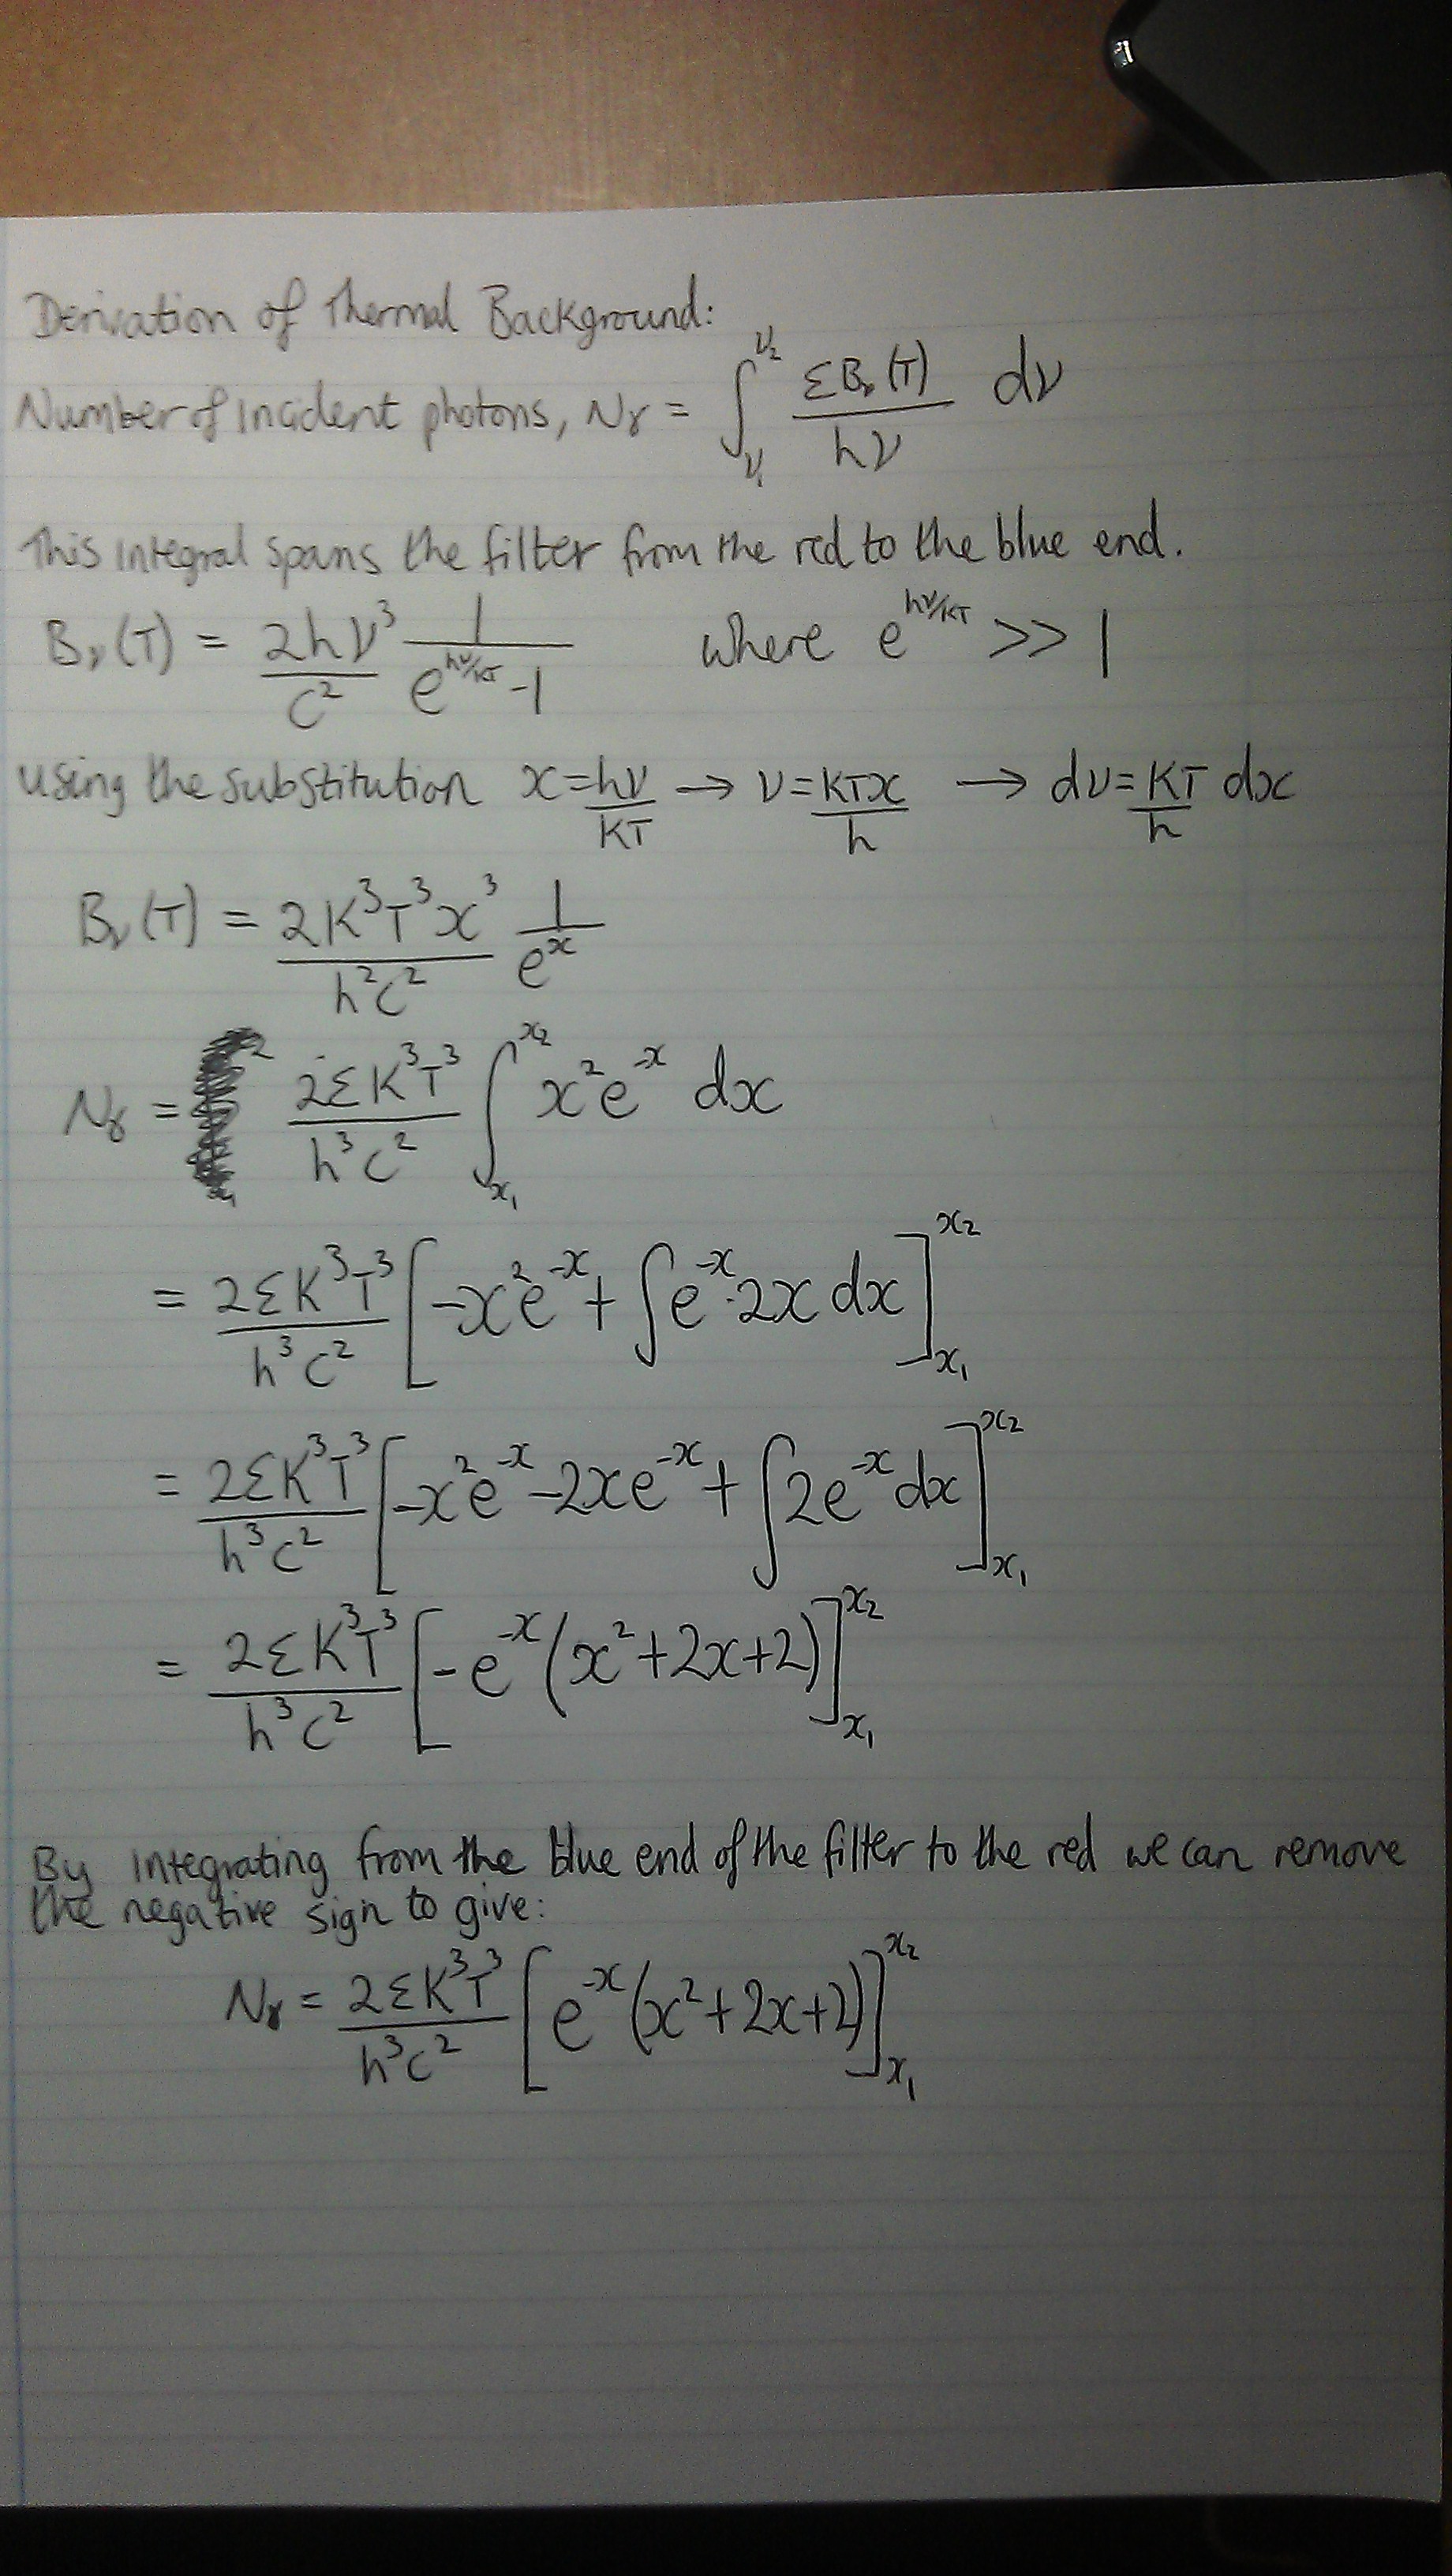 Derivation of Thermal Background:
Number of incident photons, Nγ = ∫_{ν₁}^{ν₂} εBν(T)/hν dν
This integral spans the filter from the red to the blue end.
Bν(T) = 2hν³/c² 1/(e^{hν/KT} - 1) where e^{hν/KT} >> 1
using the substitution x = hν/KT → ν = KTx/h → dν = KT/h dx
Bν(T) = 2K³T³x³/h²c² 1/e^x
Nγ = 2εK³T³/h³c² ∫_{x₁}^{x₂} x²e^{-x} dx
= 2εK³T³/h³c² [-x²e^{-x} + ∫e^{-x}·2x dx]_{x₁}^{x₂}
= 2εK³T³/h³c² [-x²e^{-x} - 2xe^{-x} + ∫2e^{-x} dx]_{x₁}^{x₂}
= 2εK³T³/h³c² [-e^{-x}(x² + 2x + 2)]_{x₁}^{x₂}
By integrating from the blue end of the filter to the red we can remove
the negative sign to give:
Nγ = 2εK³T³/h³c² [e^{-x}(x² + 2x + 2)]_{x₁}^{x₂}